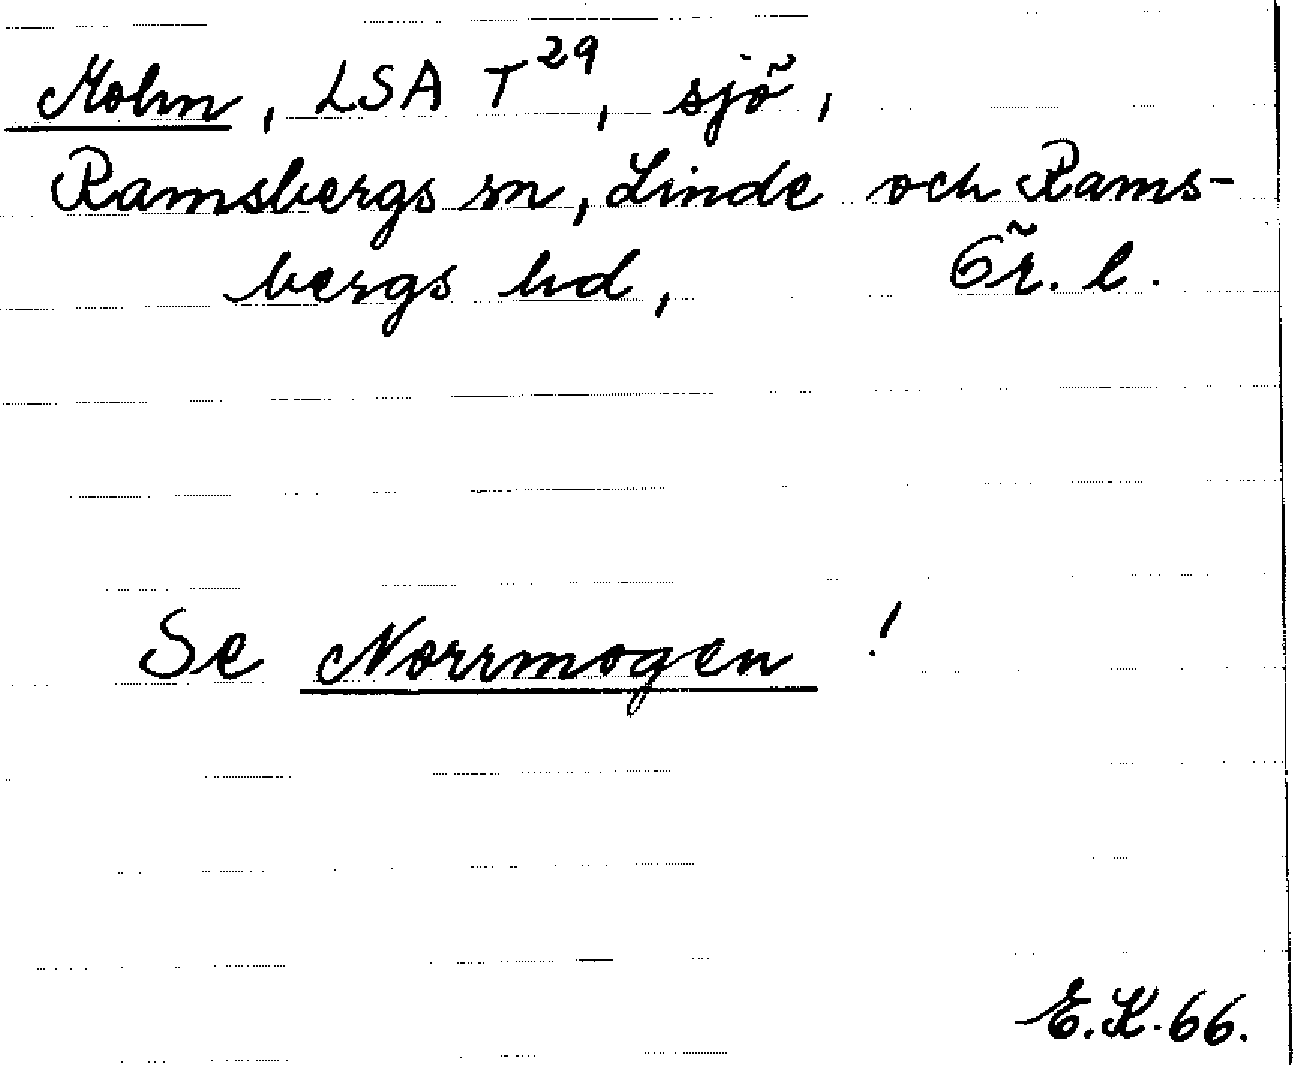 Mohn, LSA T29, sjö,
Ramsbergs sn, Linde och Rams-
bergs hd, Ör. l.
Se Norrmogen!
E.K. 66.